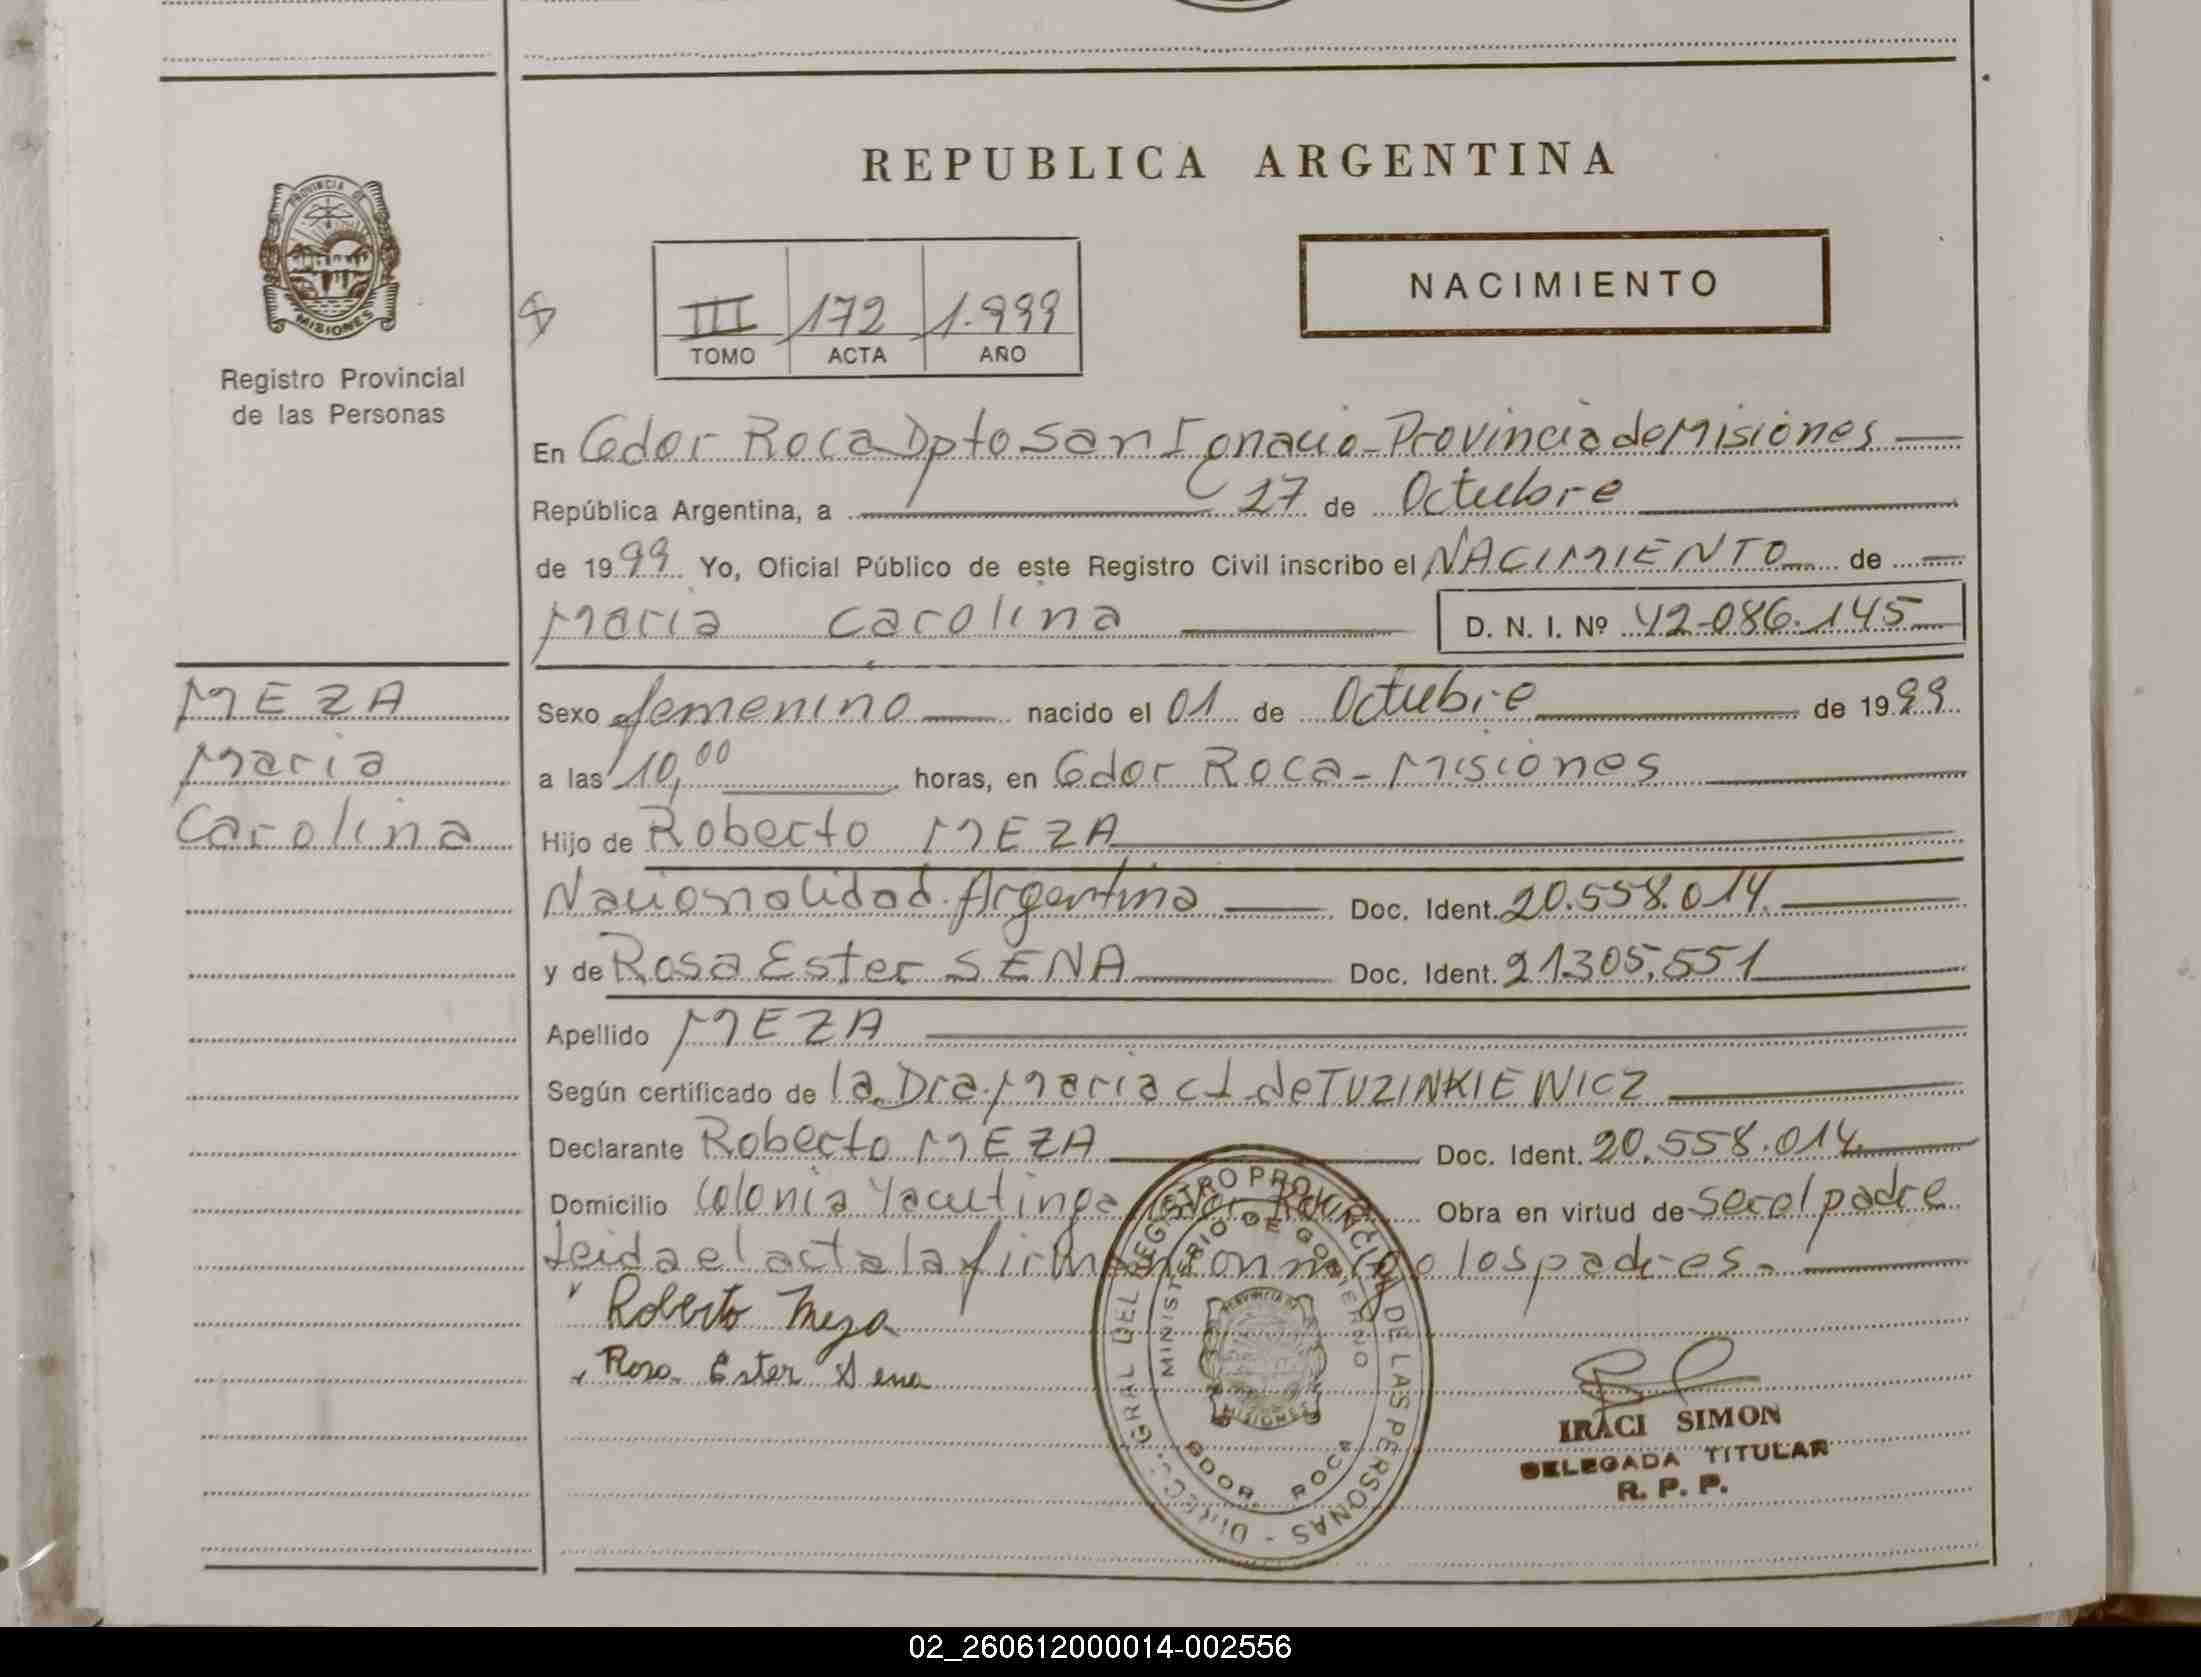 REPUBLICA ARGENTINA
PROVINCIA DE
MISIONES
Registro Provincial
de las Personas
NACIMIENTO
III 172 1.999
TOMO ACTA AÑO
En Gdor Roca Dpto San Ignacio - Provincia de Misiones
República Argentina, a 27 de Octubre
de 1999 Yo, Oficial Público de este Registro Civil inscribo el NACIMIENTO de
Maria Carolina D. N. I. Nº 42-086.145
MEZA
Maria
Carolina
Sexo femenino nacido el 01 de Octubre de 1999
a las 10,00 horas, en Gdor Roca - Misiones
Hijo de Roberto MEZA
Nacionalidad Argentina Doc. Ident. 20.558.014.
y de Rosa Ester SENA Doc. Ident. 21305.551
Apellido MEZA
Según certificado de la Dra. Maria de TUZINKIEWICZ
Declarante Roberto MEZA Doc. Ident. 20.558.014.
Domicilio Colonia Yacutinga Gdor Roca Obra en virtud de ser el padre
Leida el acta la firman conmigo los padres.
Roberto Meza
Rosa Ester Sena
DIRECC. GRAL DEL REGISTRO PROVINCIAL DE LAS PERSONAS -
MINISTERIO DE GOBIERNO
PROVINCIA DE
MISIONES
GDOR. ROCA
IRACI SIMON
DELEGADA TITULAR
R. P. P.
02_260612000014-002556